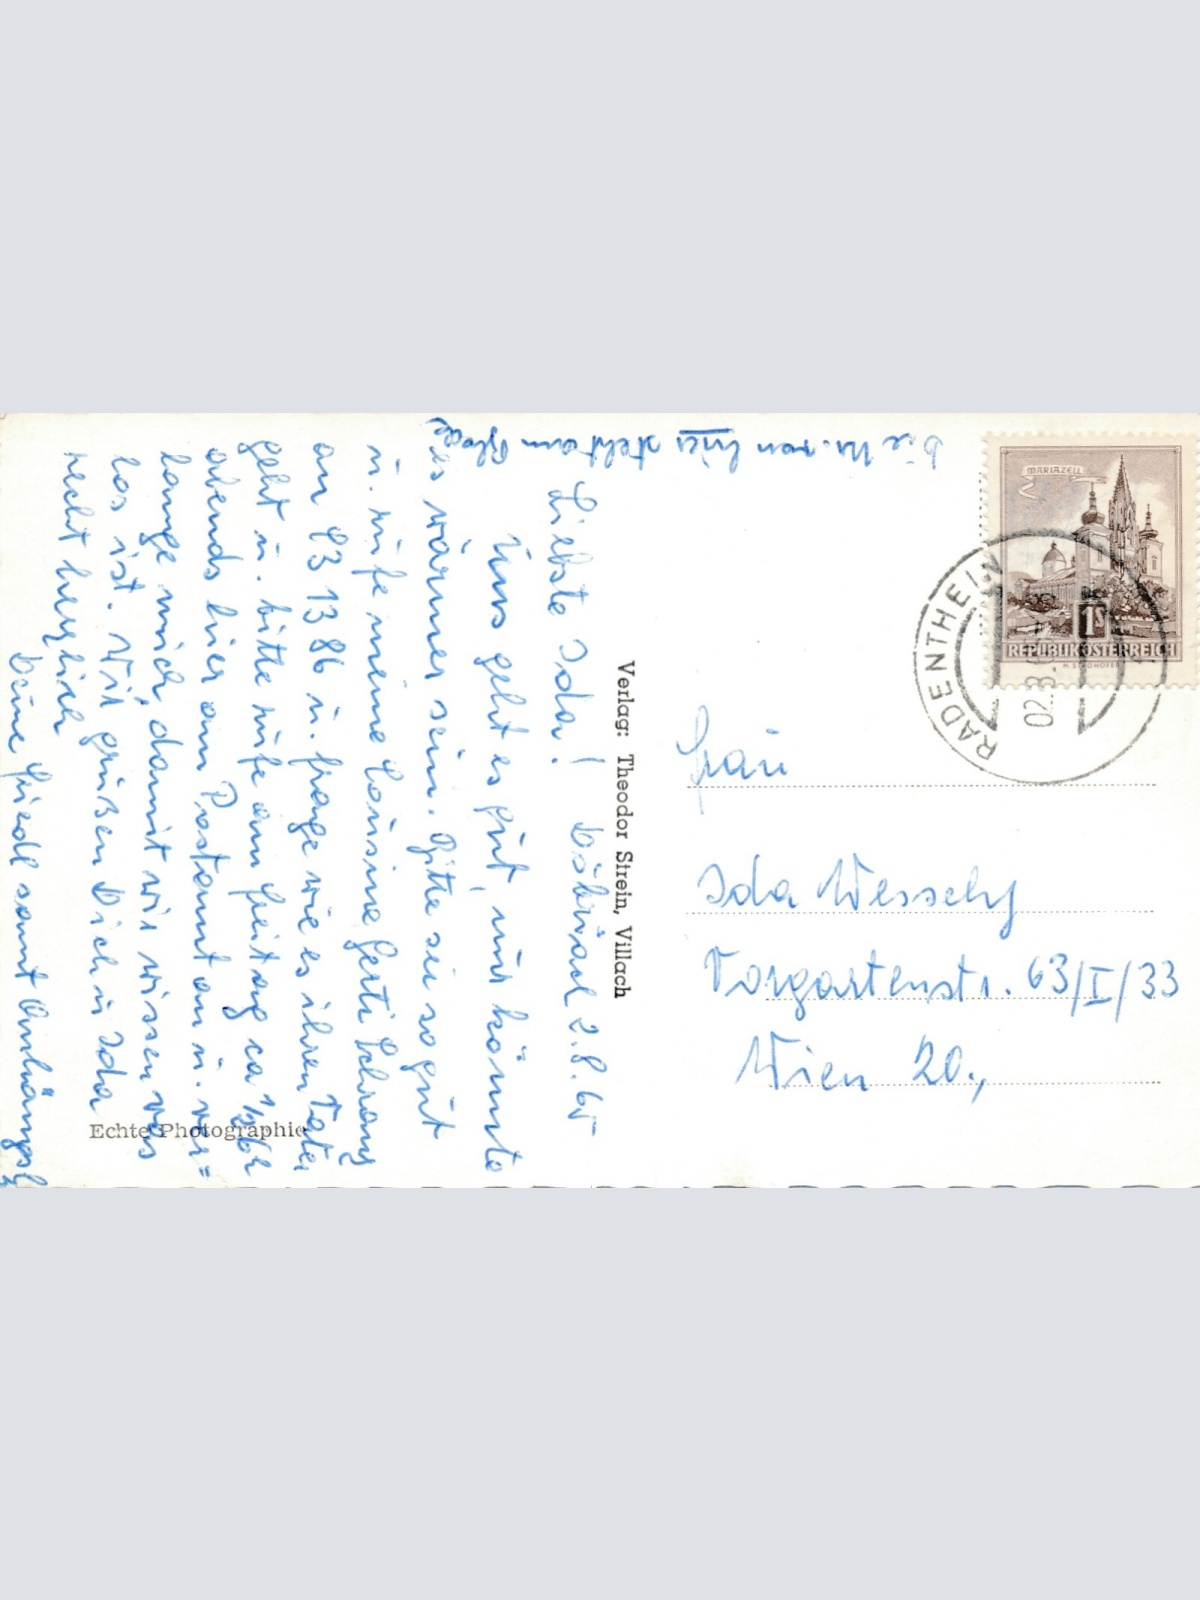 Liebste Ida! Döbriach 2.8.65
Uns geht es gut, nur könnte
es wärmer sein. Bitte sei so gut
u. rufe meine Cousine Gerti
an 43 13 86 u. frage wie es ihrem Vater
geht u. bitte rufe am Freitag ca
abends hier am Postamt an u. ver=
lange mich, damit wir wissen was
los ist. Wir grüßen Dich u. Ida
recht herzlich
Deine Friedl samt Anhängsl
Die Nr. von hier steht am
Verlag: Theodor Strein, Villach
Echte Photographie
MARIAZELL
1S
REPUBLIK ÖSTERREICH
RADENTHEIN
Frau
Ida Wessely
Vorgartenstr. 63/I/33
Wien 20.,